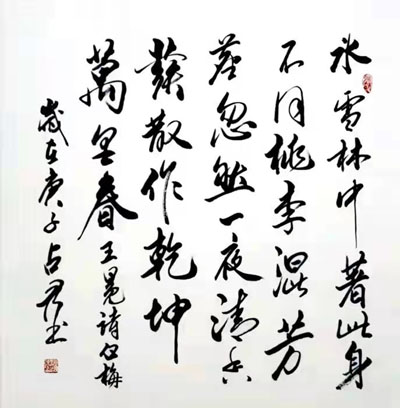 氷雪林中著此身
不同桃李混芳
塵忽然一夜清香
發散作乾坤
萬里春 王冕詩白梅
歲在庚子占君书